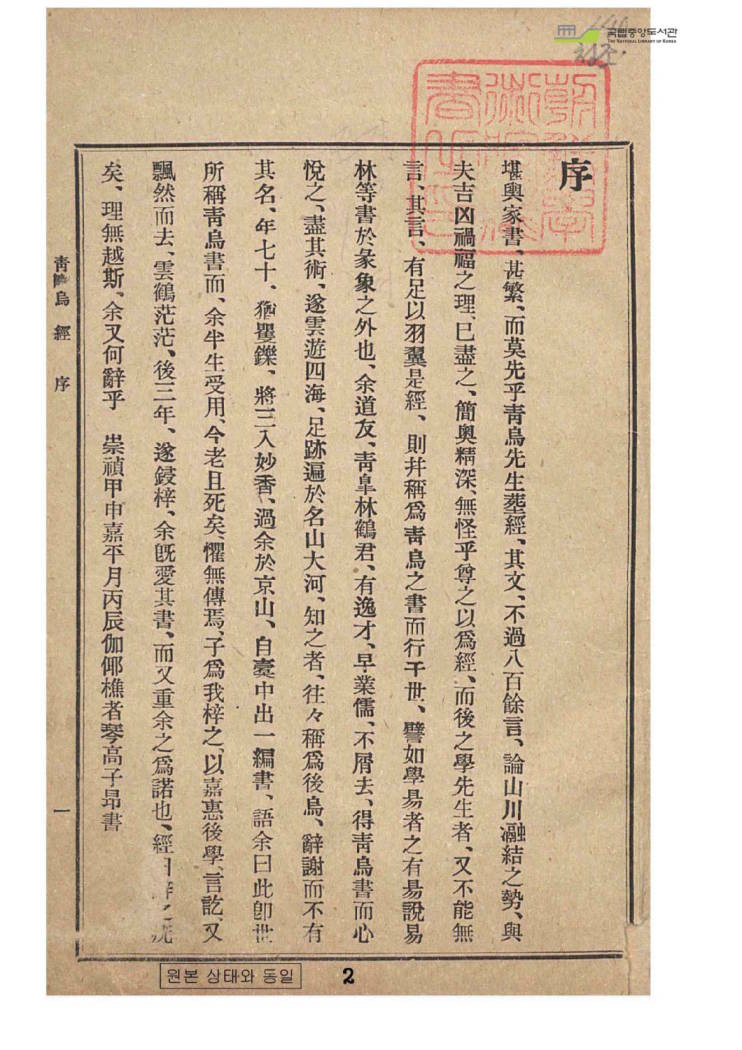 국립중앙도서관
THE NATIONAL LIBRARY OF KOREA
序
堪輿家書、甚繁、而莫先乎靑鳥先生葬經、其文、不過八百餘言、論山川瀜結之勢、與
夫吉凶禍福之理、已盡之、簡奧精深、無怪乎尊之以爲經、而後之學先生者、又不能無
言、其言、有足以羽翼是經、則幷稱爲靑鳥之書而行于世、譬如學易者之有易說易
林等書於彖象之外也、余道友、靑皐林鶴君、有逸才、早業儒、不屑去、得靑鳥書而心
悅之、盡其術、遂雲遊四海、足跡遍於名山大河、知之者、往々稱爲後鳥、辭謝而不有
其名、年七十、猶矍鑠、將三入妙香、過余於京山、自橐中出一編書、語余曰此卽世
所稱靑鳥書而、余半生受用、今老且死矣、懼無傳焉、子爲我梓之、以嘉惠後學、言訖、又
飄然而去、雲鶴茫茫、後三年、遂鋟梓、余旣愛其書、而又重余之爲諾也、經
矣、理無越斯、余又何辭乎 崇禎甲申嘉平月丙辰伽倻樵者琴高子昻書
靑鳥經 序
一
원본 상태와 동일
2